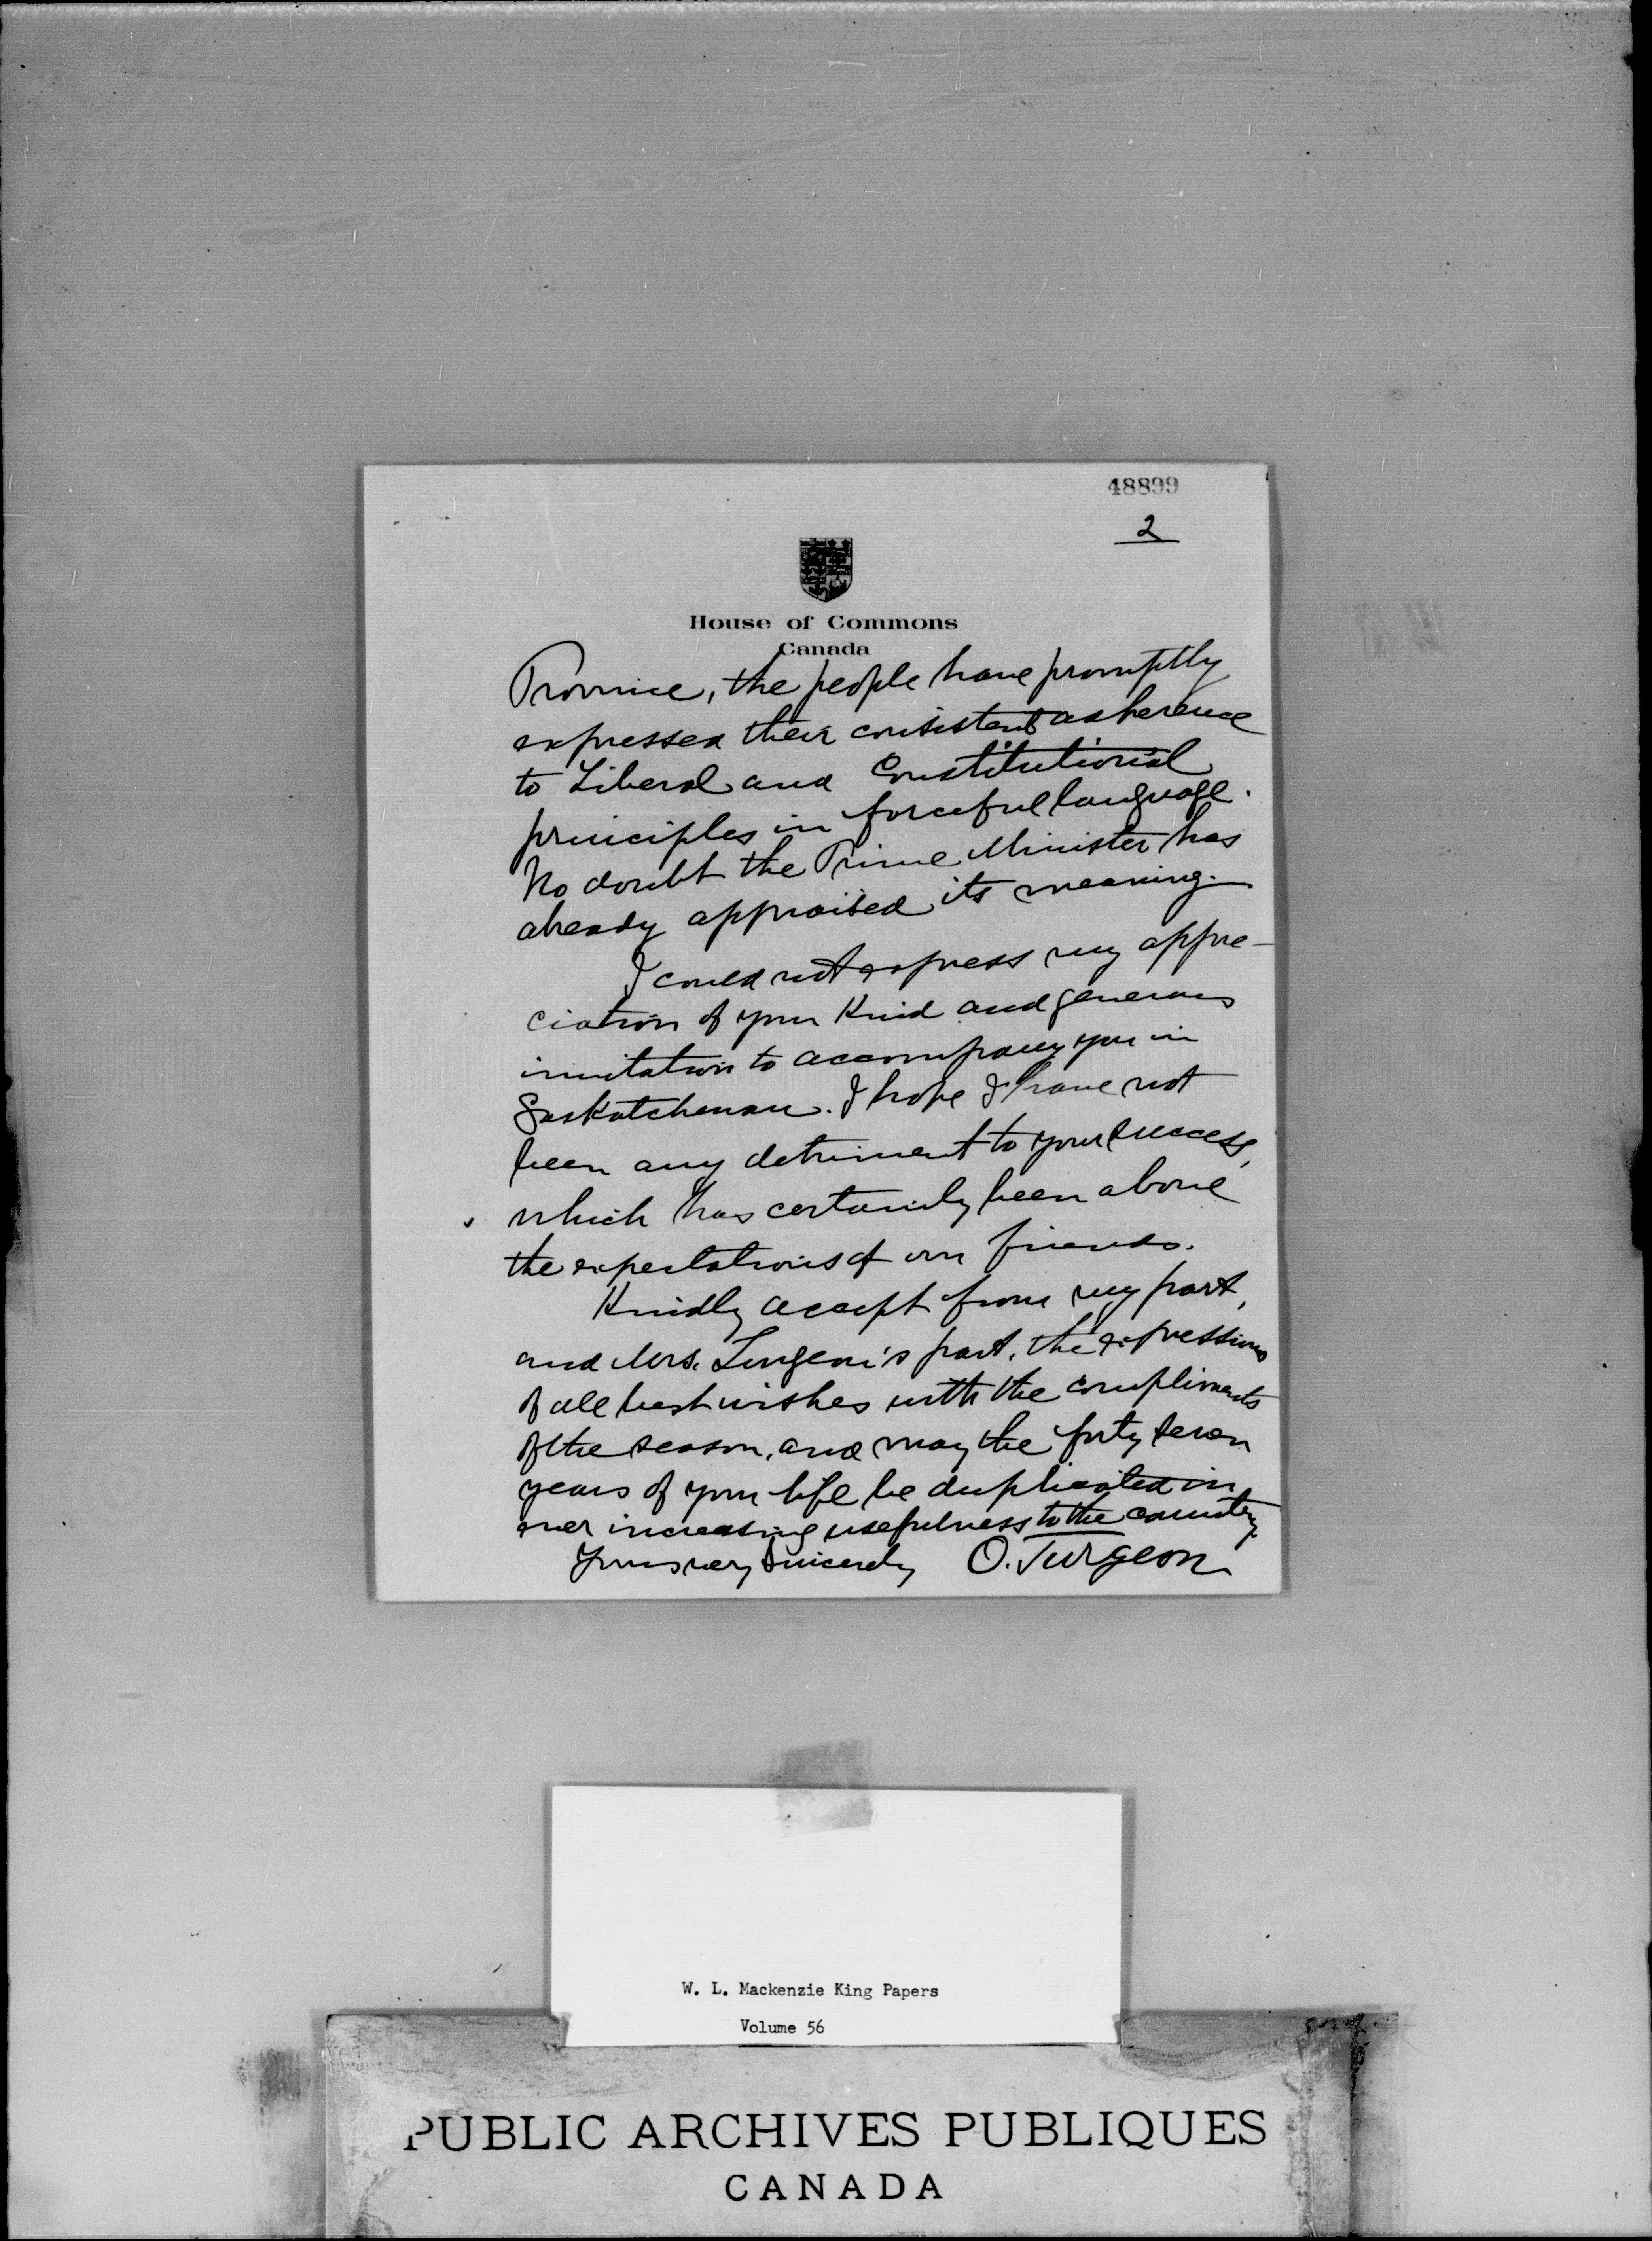 48899
2
House of Commons
Canada
Province, the people have promptly
expressed their consistent adherence
to Liberal and Constitutional
principles in forceful language.
No doubt the Prime Minister has
already appraised its meaning.
I could not express my appre-
ciation of your kind and generous
invitation to accompany you in
Saskatchewan. I hope I have not
been any detriment to your success,
which has certainly been above
the expectations of our friends.
Kindly accept from my part,
and Mrs. Turgeon's part, the expressions
of all best wishes with the compliments
of the season, and may the forty seven
years of your life be duplicated in
ever increasing usefulness to the country.
Yours very sincerely O. Turgeon
W. L. Mackenzie King Papers
Volume 56
PUBLIC ARCHIVES PUBLIQUES
CANADA